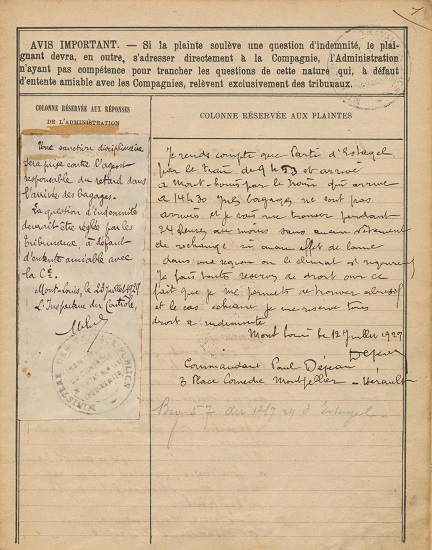 AVIS IMPORTANT. — Si la plainte soulève une question d'indemnité, le plai-
gnant devra, en outre, s'adresser directement à la Compagnie, l'Administration
n'ayant pas compétence pour trancher les questions de cette nature qui, à défaut
d'entente amiable avec les Compagnies, relèvent exclusivement des tribunaux.
COLONNE RÉSERVÉE AUX RÉPONSES
DE L'ADMINISTRATION
Une sanction disciplinaire
sera prise contre l'agent
responsable du retard dans
l'arrivée des bagages.
La question d'indemnité
devrait être réglée par les
Tribunaux, à défaut
d'entente amiable avec
la Cie.
Mont-Louis, le 23 juillet 1927
L'Inspecteur du Contrôle,
MINISTÈRE DES TRAVAUX PUBLICS
COLONNE RÉSERVÉE AUX PLAINTES
Je rends compte que Parti d'Estagel
par le train de 9h53 et arrivé
à Mont-Louis par le train qui arrive
à 14h30 mes bagages ne sont pas
arrivés et je vais me trouver pendant
24 heures au moins sans aucun vêtement
de rechange ni aucun effet de laine
dans une région où le climat est rigoureux
Je fais toute réserve de droit sur ce
fait que je me permets de trouver abusif
et le cas échéant je me réserve tous
droit à indemnité
Mont Louis le 12 Juillet 1927
Dejean
Commandant Paul Dejean
3 Place Comédie Montpellier - Hérault